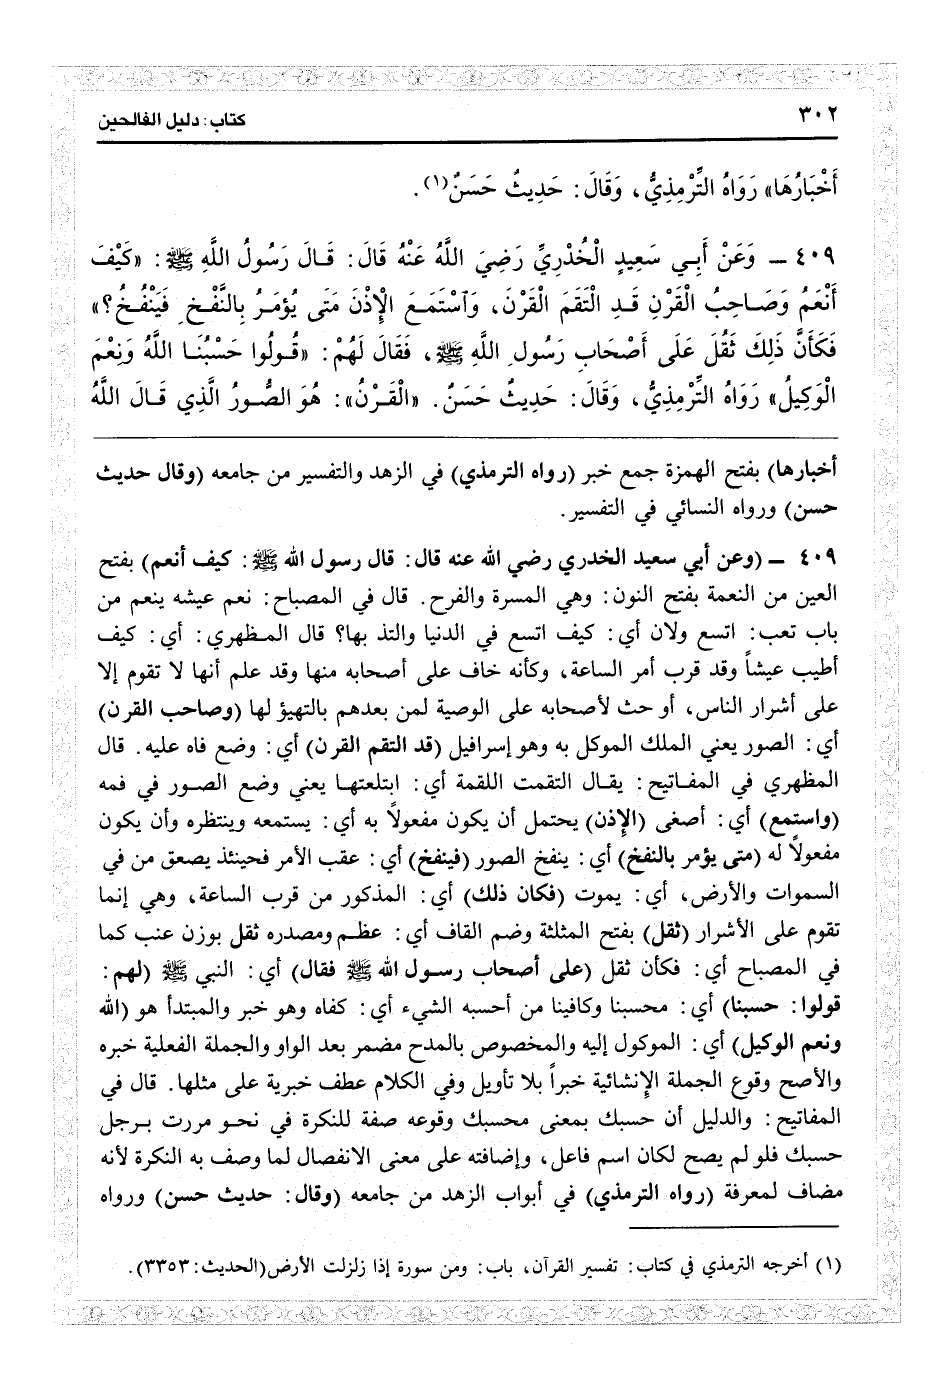 ٣٠٢
كتاب: دليل الفالحين
أَخْبَارُهَا» رَوَاهُ التِّرْمِذِيُّ، وَقَالَ: حَدِيثٌ حَسَنٌ(١).
٤٠٩ ـ وَعَنْ أَبِي سَعِيدٍ الْخُدْرِيِّ رَضِيَ اللَّهُ عَنْهُ قَالَ: قَالَ رَسُولُ اللَّهِ ﷺ: «كَيْفَ
أَنْعَمُ وَصَاحِبُ الْقَرْنِ قَدِ الْتَقَمَ الْقَرْنَ، وَٱسْتَمَعَ الْإِذْنَ مَتَى يُؤْمَرُ بِالنَّفْخِ فَيَنْفُخُ؟»
فَكَأَنَّ ذَلِكَ ثَقُلَ عَلَى أَصْحَابِ رَسُولِ اللَّهِ ﷺ، فَقَالَ لَهُمْ: «قُولُوا حَسْبُنَا اللَّهُ وَنِعْمَ
الْوَكِيلُ» رَوَاهُ التِّرْمِذِيُّ، وَقَالَ: حَدِيثٌ حَسَنٌ. «الْقَرْنُ»: هُوَ الصُّورُ الَّذِي قَالَ اللَّهُ
أخبارها) بفتح الهمزة جمع خبر (رواه الترمذي) في الزهد والتفسير من جامعه (وقال حديث
حسن) ورواه النسائي في التفسير.
٤٠٩ ـ (وعن أبي سعيد الخدري رضي الله عنه قال: قال رسول الله ﷺ: كيف أنعم) بفتح
العين من النعمة بفتح النون: وهي المسرة والفرح. قال في المصباح: نعم عيشه ينعم من
باب تعب: اتسع ولان أي: كيف اتسع في الدنيا والتذ بها؟ قال المظهري: أي: كيف
أطيب عيشاً وقد قرب أمر الساعة، وكأنه خاف على أصحابه منها وقد علم أنها لا تقوم إلا
على أشرار الناس، أو حث لأصحابه على الوصية لمن بعدهم بالتهيؤ لها (وصاحب القرن)
أي: الصور يعني الملك الموكل به وهو إسرافيل (قد التقم القرن) أي: وضع فاه عليه. قال
المظهري في المفاتيح: يقال التقمت اللقمة أي: ابتلعتها يعني وضع الصور في فمه
(واستمع) أي: أصغى (الإذن) يحتمل أن يكون مفعولاً به أي: يستمعه وينتظره وأن يكون
مفعولاً له (متى يؤمر بالنفخ) أي: ينفخ الصور (فينفخ) أي: عقب الأمر فحينئذ يصعق من في
السموات والأرض، أي: يموت (فكان ذلك) أي: المذكور من قرب الساعة، وهي إنما
تقوم على الأشرار (ثقل) بفتح المثلثة وضم القاف أي: عظم ومصدره ثقل بوزن عنب كما
في المصباح أي: فكأن ثقل (على أصحاب رسول الله ﷺ فقال) أي: النبي ﷺ (لهم:
قولوا: حسبنا) أي: محسبنا وكافينا من أحسبه الشيء أي: كفاه وهو خبر والمبتدأ هو (الله
ونعم الوكيل) أي: الموكول إليه والمخصوص بالمدح مضمر بعد الواو والجملة الفعلية خبره
والأصح وقوع الجملة الإنشائية خبراً بلا تأويل وفي الكلام عطف خبرية على مثلها. قال في
المفاتيح: والدليل أن حسبك بمعنى محسبك وقوعه صفة للنكرة في نحو مررت برجل
حسبك فلو لم يصح لكان اسم فاعل، وإضافته على معنى الانفصال لما وصف به النكرة لأنه
مضاف لمعرفة (رواه الترمذي) في أبواب الزهد من جامعه (وقال: حديث حسن) ورواه
(١) أخرجه الترمذي في كتاب: تفسير القرآن، باب: ومن سورة إذا زلزلت الأرض(الحديث: ٣٣٥٣).